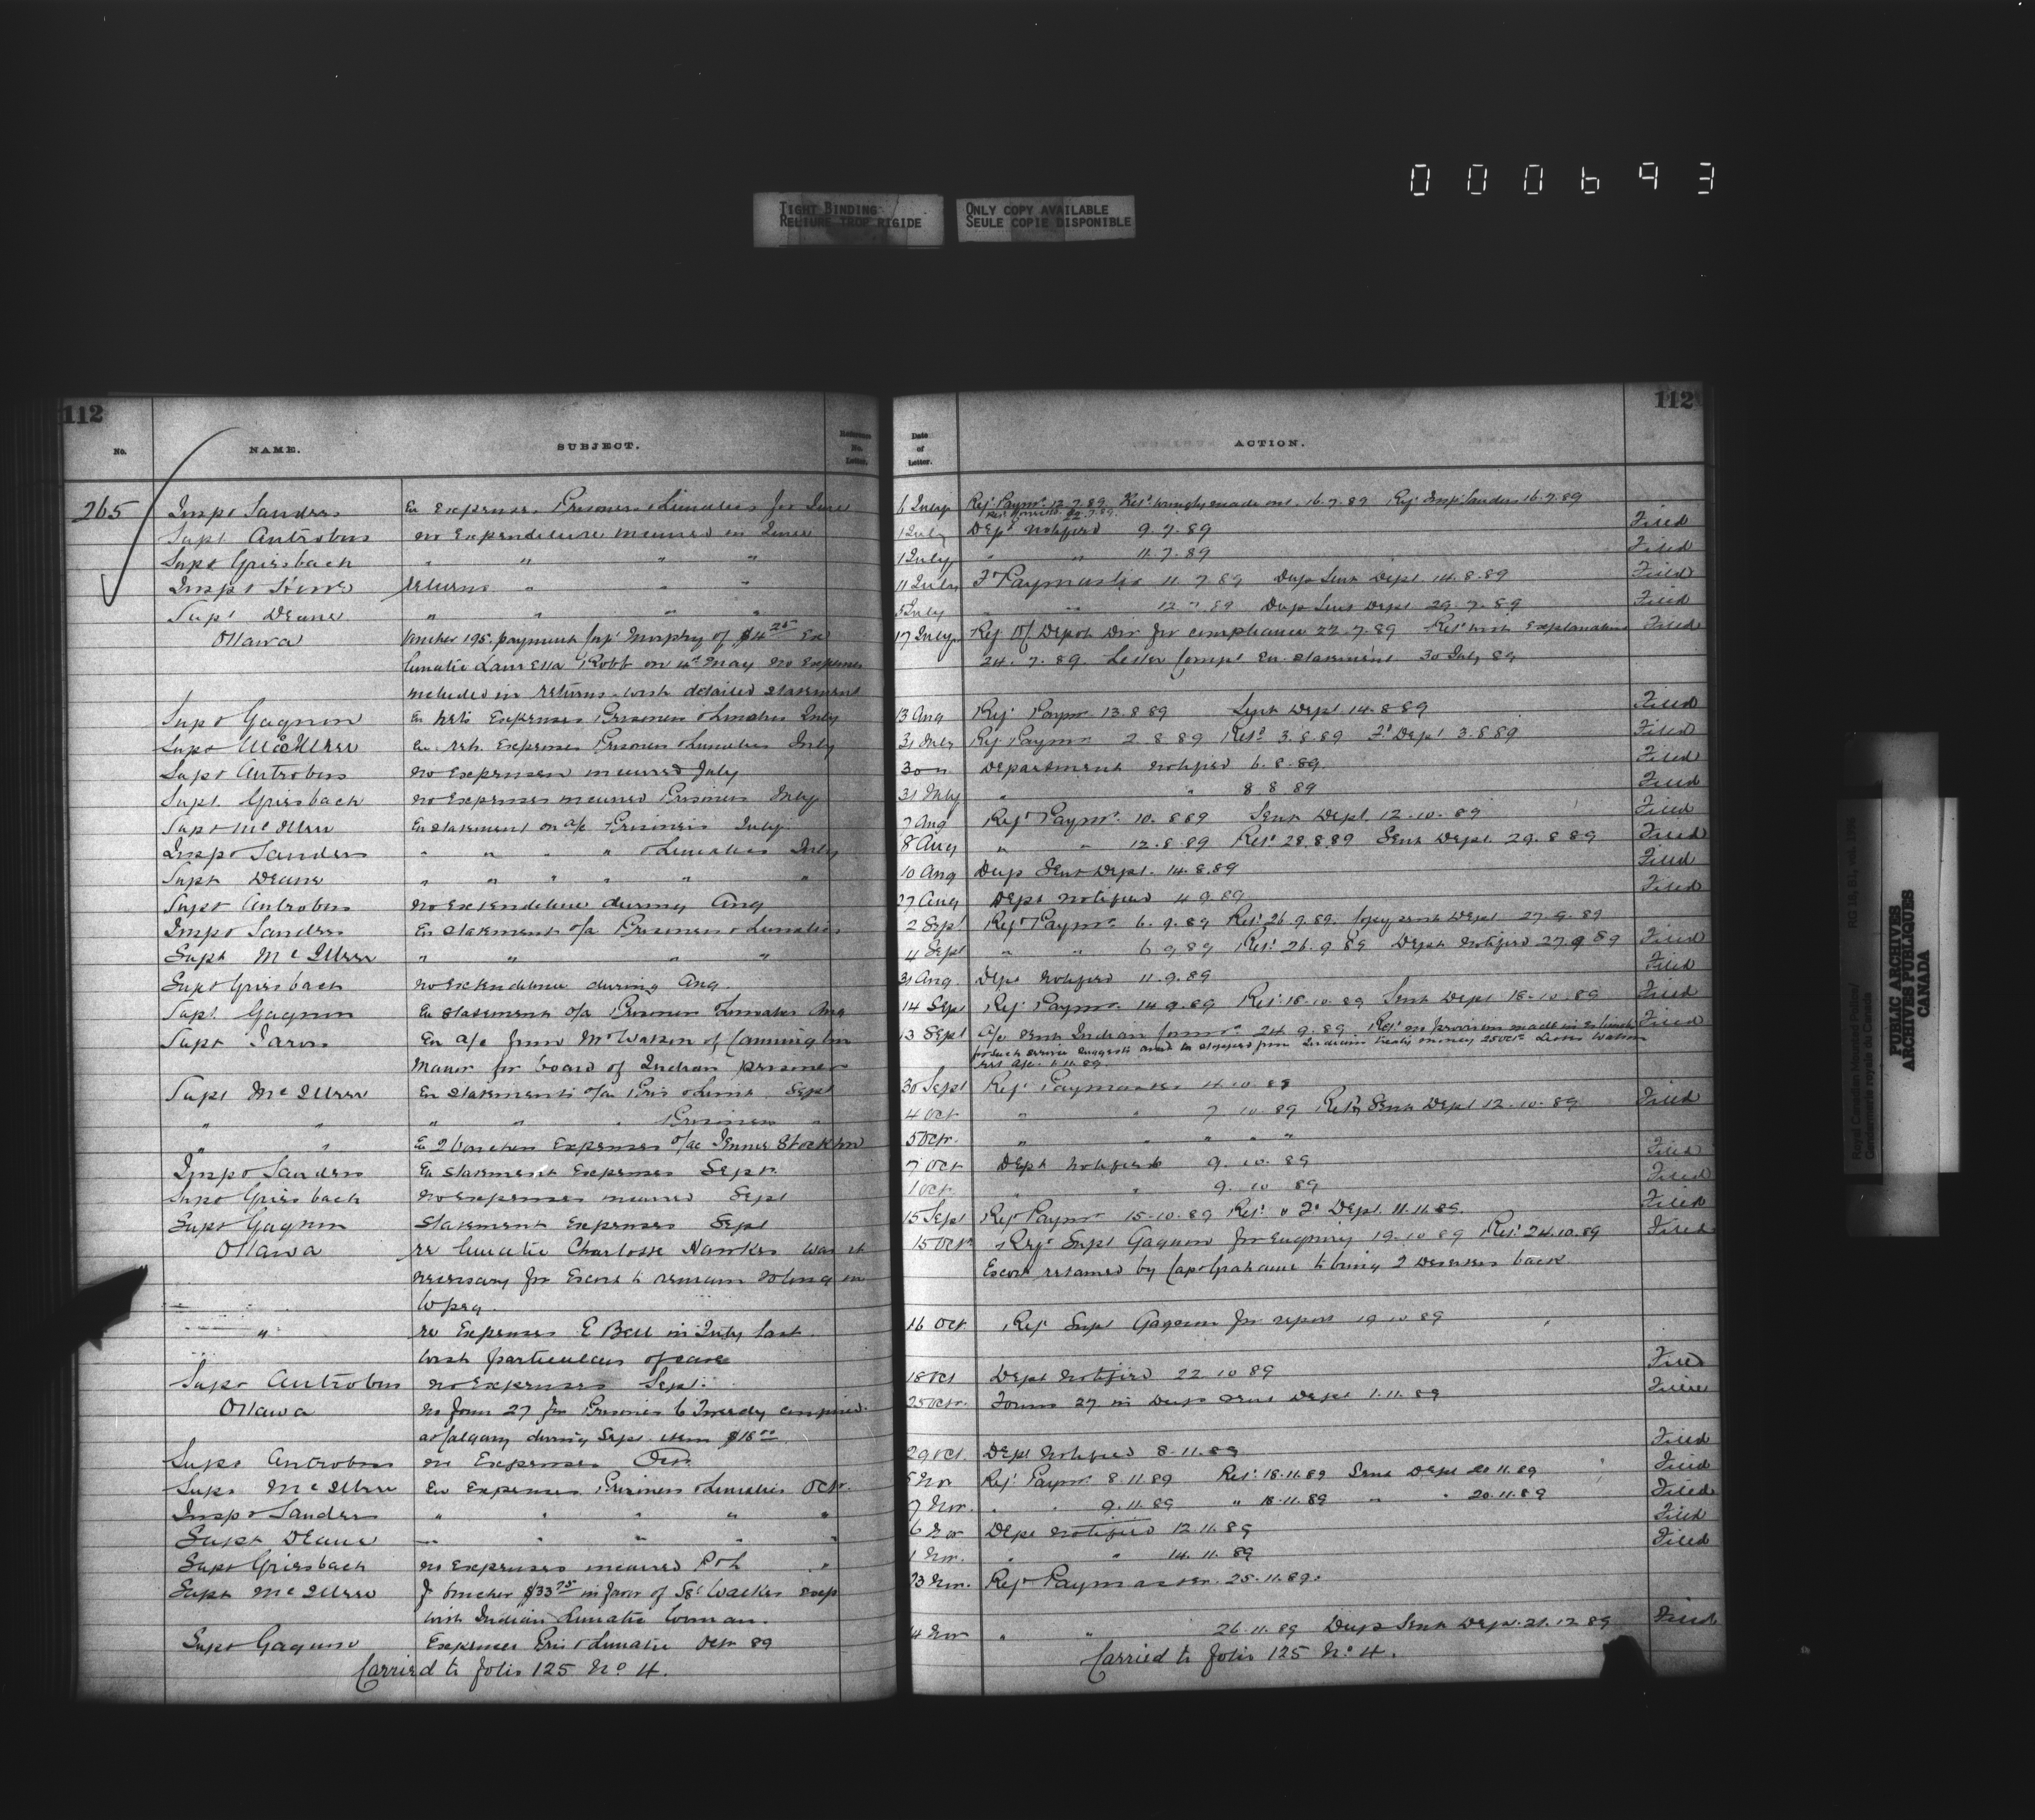 000693
TIGHT BINDING
RELIURE TROP RIGIDE
ONLY COPY AVAILABLE
SEULE COPIE DISPONIBLE
112
No.
NAME.
SUBJECT.
Reference No. Letter.
265 Inspr Sanders En expenses Prisoners & Lunatics for June
Supt Antrobus no Expenditure incurred in June
Supt Griesbach " " " "
Inspr returns " " "
Supt Deane " " " "
Ottawa Voucher 195. payment Insp Murphy of $4 25 Exs
lunatic Lauretta Robb on 4th May no expenses
included in returns. wish detailed statement
Supt Gagnon En Expenses Prisoners & Lunatics July
Supt McIllree En retn. Expenses Prisoners & Lunatics July
Supt Antrobus no expenses incurred July
Supt. Griesbach no expenses incurred Prisoners July
Supt McIllree En statement on a/c Prisoners July
Inspr Sanders " " " " & Lunatics July
Supt Deane " " " " " "
Supt Antrobus no expenditure during Aug
Inspr Sanders En statement o/a Prisoners & Lunatics
Supt McIllree " " " "
Supt Griesbach no expenditure during Aug.
Supt. Gagnon En statement o/a Prisoners Lunatics Aug
Supt Jarvis En a/c from Mr Watson of Cannington
Manor for board of Indian prisoners
Supt McIllree En Statements o/a Pris & Luns. Sept
" " " " " Prisoners "
" " En 2 vouchers Expenses o/ac Stockton
Inspr Sanders En statement Expenses Sept.
Supt Griesbach no expenses incurred Sept
Supt Gagnon Statement Expenses Sept
Ottawa re lunatic Charlotte Hawkes was it
necessary for Escort to remain so long in
Wpeg.
" re Expenses E Bell in July last.
Wish particulars of case
Supt Antrobus no expenses Sept.
Ottawa no form 27 for Prisoner confined
at Calgary during Sept. item $18 00
Supt Antrobus no Expenses Oct.
Supt McIllree En expenses Prisoners & Lunatics Octr.
Inspr Sanders " " " " "
Supt Deane " " " " "
Supt Griesbach no expenses incurred P & L "
Supt McIllree f voucher $33 75 in favor of Sgt Walker
with Indian Lunatic woman.
Supt Gagnon Expenses Pris & Lunatic Octr 89
Carried to folio 125 No 4.
112
Date of Letter.
ACTION.
6 July Refd Paymr 12.7.89 Retd wrongly made out. 16.7.89 Refd Insp Sanders 16.7.89
22.7.89
1 July Dept notified 9.7.89 Filed
1 July " " 11.7.89 Filed
11 July Fd Paymaster 11.7.89 Dup Sent Dept 14.8.89 Filed
5 July " " 12.7.89 Dup Sent Dept 29.7.89 Filed
17 July Refd O/ Depot Div for compliance 22.7.89 Retd with Explanation Filed
24.7.89 Letter Compt En statement 30 July 89
13 Aug Refd Paymr 13.8.89 Sent Dept 14.8.89 Filed
31 July Refd Paymr 2.8.89 Retd 3.8.89 Fd Dept 3.8.89 Filed
30 " Department notified 6.8.89 Filed
31 July " " 8.8.89 Filed
7 Aug Refd Paymr. 10.8.89 Sent Dept. 12.10.89 Filed
8 Aug " " 12.8.89 Retd 28.8.89 Sent Dept. 29.8.89 Filed
10 Aug Dup Sent Dept. 14.8.89 Filed
27 Aug Dept notified 4.9.89 Filed
2 Sept Refd Paymr 6.9.89 Retd 26.9.89. Copy sent Dept 27.9.89
4 Sept " " 6.9.89 Retd 26.9.89 Dept notified 27.9.89 Filed
31 Aug. Dept notified 11.9.89 Filed
14 Sept Refd Paymr. 14.9.89 Retd 18.10.89 Sent Dept 18.10.89 Filed
13 Sept A/c sent Indian Commr 24.9.89. Retd no provision made in Estimates Filed
for such service suggests amt be stopped from Indians treaty money 25 Octr Letter Watson
1.11.89
30 Sept Refd Paymaster 4.10.89
4 Oct " " 7.10.89 Retd & Sent Dept 12.10.89 Filed
5 Octr. " " " " "
7 Oct Dept notified 9.10.89 Filed
1 Oct " " 9.10.89 Filed
15 Sept Refd Paymr 15.10.89 Retd & Fd Dept 11.11.89. Filed
15 Octr Refd Supt Gagnon for Enquiry 19.10.89 Retd 24.10.89 Filed
Escort retained by Capt Grahame to bring 2 Deserters back
16 Oct Refd Supt Gagnon for report 19.10.89
18 Oct Dept notified 22.10.89 Filed
25 Octr. Forms 27 in Dup sent Dept 1.11.89 Filed
29 Oct. Dept Notified 8.11.89 Filed
5 Nov Refd Paymr 8.11.89 Retd 18.11.89 Sent Dept 20.11.89 Filed
7 Nov. " " 9.11.89 " 18.11.89 " " 20.11.89 Filed
6 Nov Dept notified 12.11.89 Filed
1 Nov. " " 14.11.89 Filed
23 Nov. Refd Paymaster 25.11.89.
4 Nov " " 26.11.89 Dup Sent Dept. 21.12.89 Filed
Carried to folio 125 No 4.
Royal Canadian Mounted Police/
Gendarmerie royale du Canada
PUBLIC ARCHIVES
ARCHIVES PUBLIQUES
CANADA